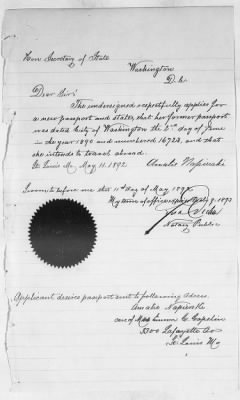 Hon Secretary of State
Washington
D.C.
Dear Sir:
The undersigned respectfully applies for
a new passport and states, that her former passport
was dated City of Washington the day of June
in the year 1890 and numbered 16723, and that
she intends to travel abroad.
St. Louis Mo May 11. 1892. Amalie Napieralski
Sworn to before me this 11th day of May 1892.
My term of office expires 9. 1893
Notary Public
Applicant desires passport sent to following adress.
Amalie
care of Mrs Emma C.
3300 Lafayette Ave
St Louis Mo